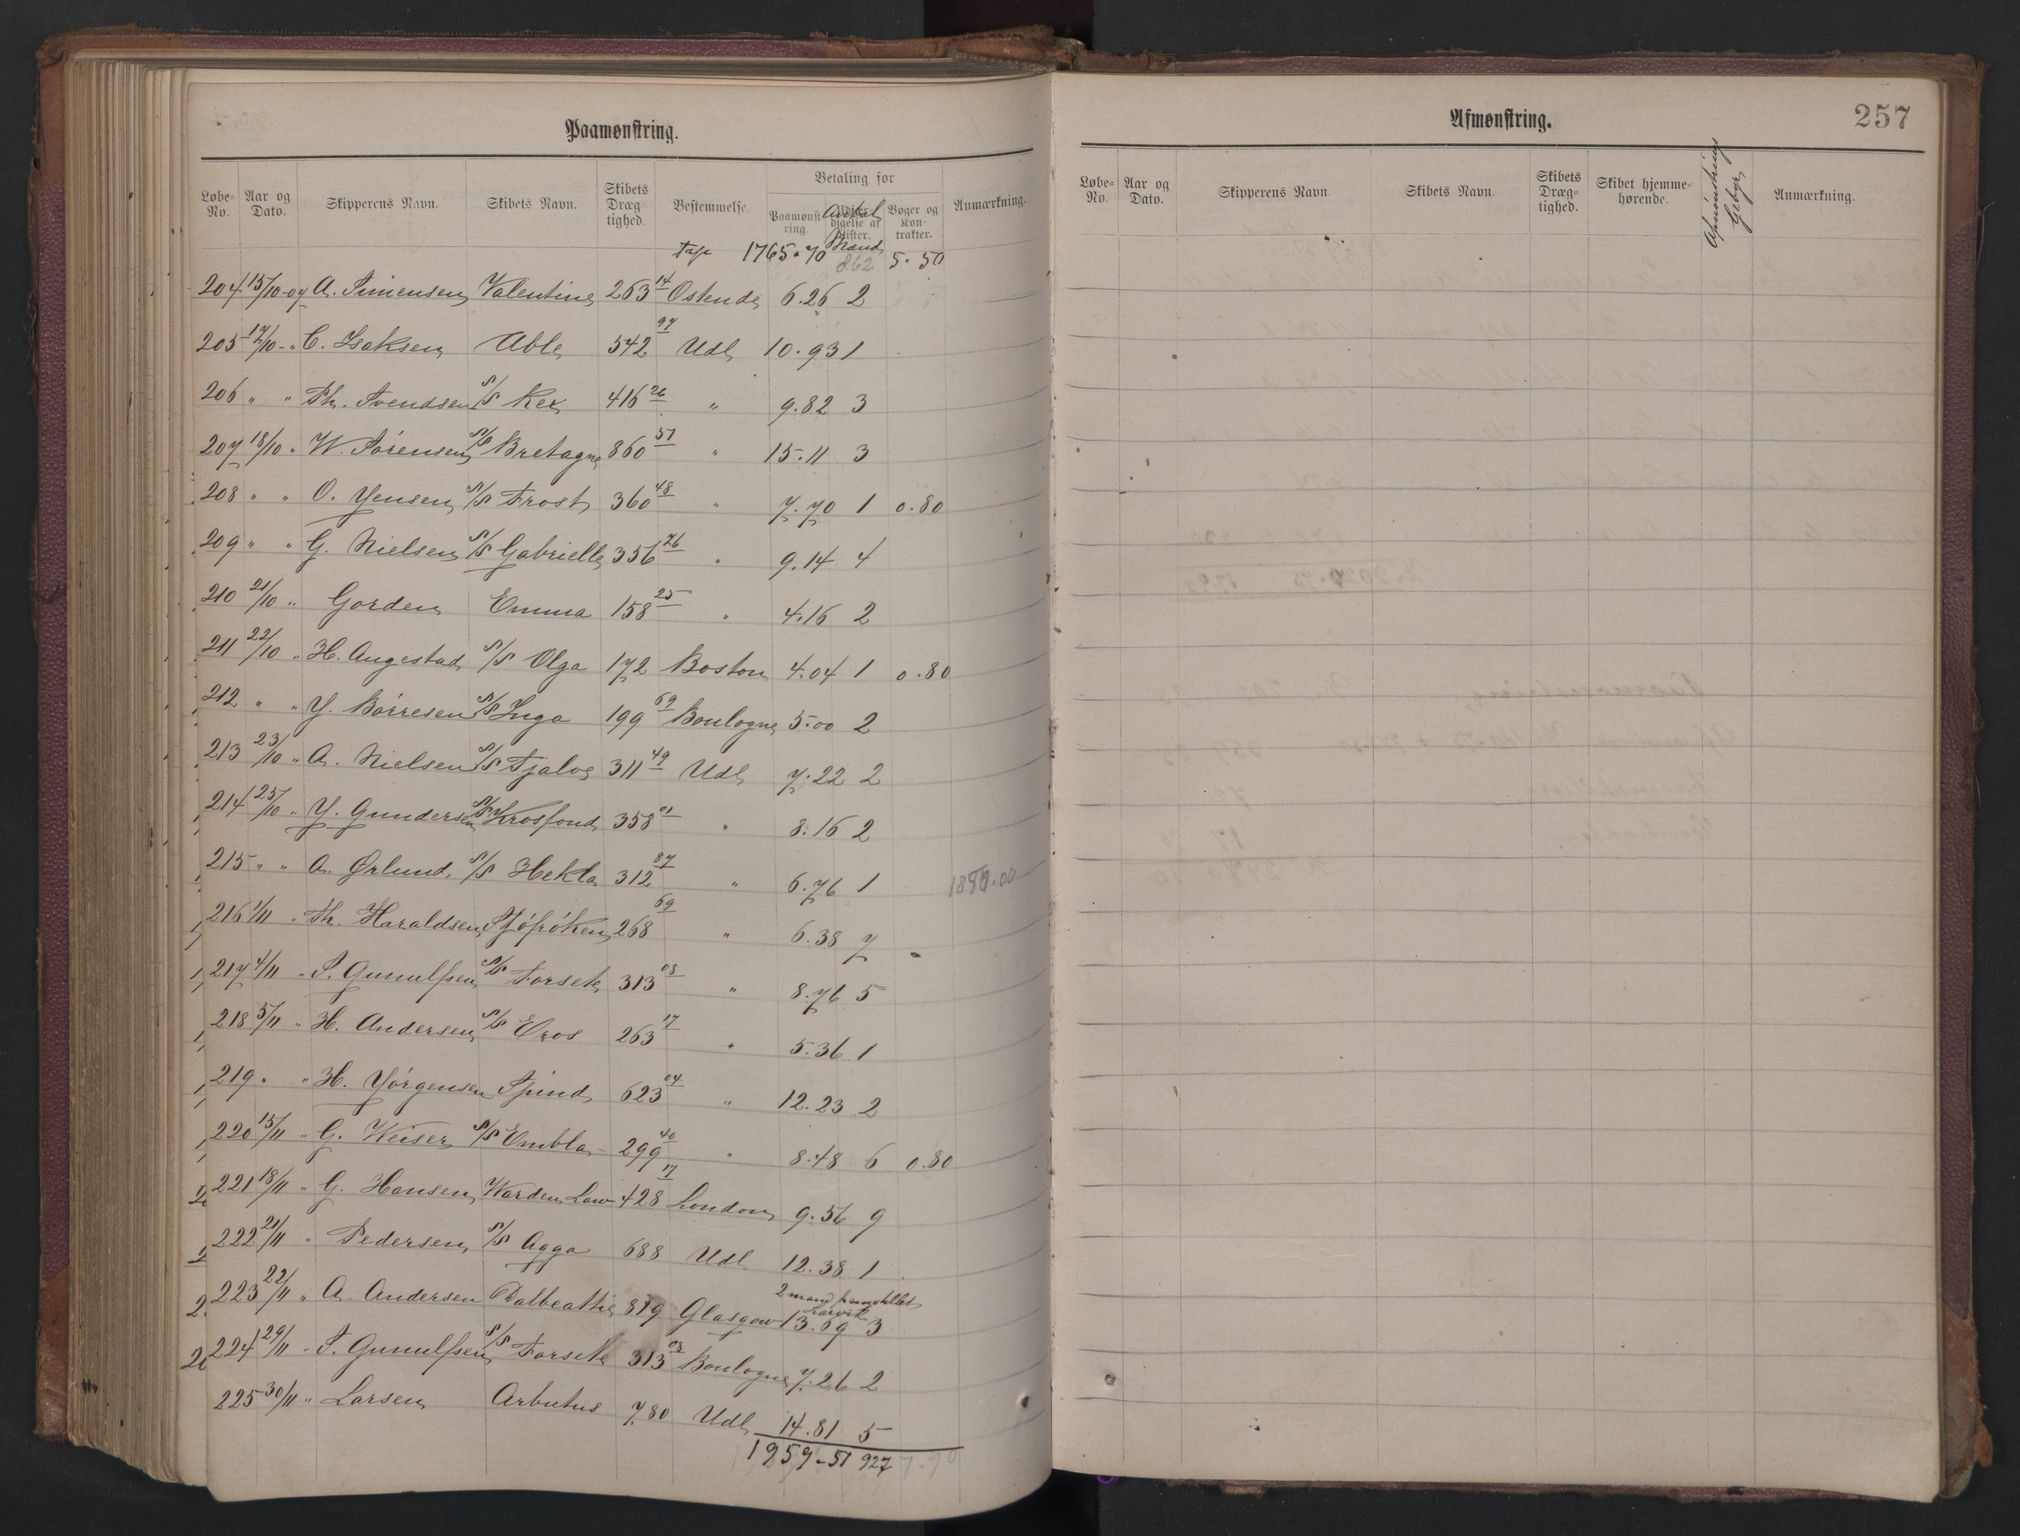 Paamønstring.
Løbe-No. Aar og Dato. Skipperens Navn. Skibets Navn. Skibets Dræg-tighed. Bestemmelse. Betaling for Paamønst-ring. Antal Mænd Bøger og Kon-trakter. Anmærkning.
1765.70 862 5.50
204 15/10-04 A. Simensen Valentine 263 14 Ostende 6.26 2
205 17/10 - " C. Isaksen Able 542 97 Udl 10.93 1
206 " " Th. Svendsen S/S Rex 416 26 " 9.82 3
207 18/10 " W. Sørensen S/S Bretagne 860 57 " 15.11 3
208 " " O. Jensen S/S Frost 360 48 " 7.70 1 0.80
209 " " G. Nielsen S/S Gabrielle 356 76 " 9.14 4
210 21/10 " Gorden Emma 158 25 " 4.16 2
211 22/10 " H. Angestad S/S Olga 172 Boston 4.04 1 0.80
212 " " J. Børresen S/S Inga 199 69 Boulogne 5.00 2
213 23/10 " A. Nielsen S/S Fjalve 311 49 Udl 7.22 2
214 25/10 " J. Gundersen S/S Krosfond 358 01 " 8.16 2
215 " " A. Ørlund S/S Hekla 312 87 " 6.76 1
216 1/11 " Th. Haraldsen Sjøfrøken 268 69 " 6.38 7
217 4/11 " S. Gunulfsen S/S Forsete 313 08 " 8.76 5
218 5/11 " H. Andersen S/S Eros 263 17 " 5.36 1
219 " " H. Jørgensen Spind 623 04 " 12.23 2
220 15/11 " G. Weiser S/S Embla 299 40 " 8.48 6 0.80
221 18/11 " G. Hansen Warden Law 428 17 London 9.56 9
222 21/11 " Pedersen S/S Agga 688 Udl 12.38 1
2 mand
Larvik
223 22/11 " A. Andersen Dalbeattie 819 Glasgow 13.09 3
224 29/11 - S. Gunulfsen S/S Forsete 313 08 Boulogne 7.26 2
225 30/11 " Larsen Arbutus 780 Udl 14.81 5
1959.51 927 7.90
Afmønstring.
257
Løbe-No. Aar og Dato. Skipperens Navn. Skibets Navn. Skibets Dræg-tighed. Skibet hjemme-hørende. Afmønstrings Gebyr Anmærkning.